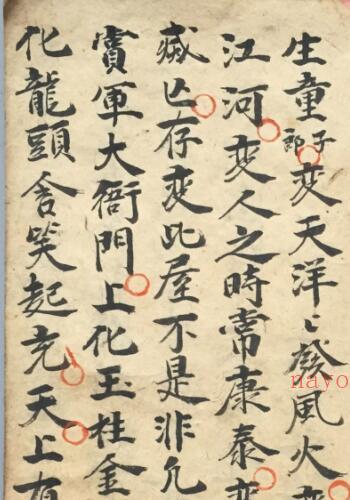 生童子郎变天洋〻發風火变
江河变人之時常康泰变
藏亾存变此屋不是非凡
賞軍大衙門上化玉柱金
化龍頭含笑起充天上有
nayo